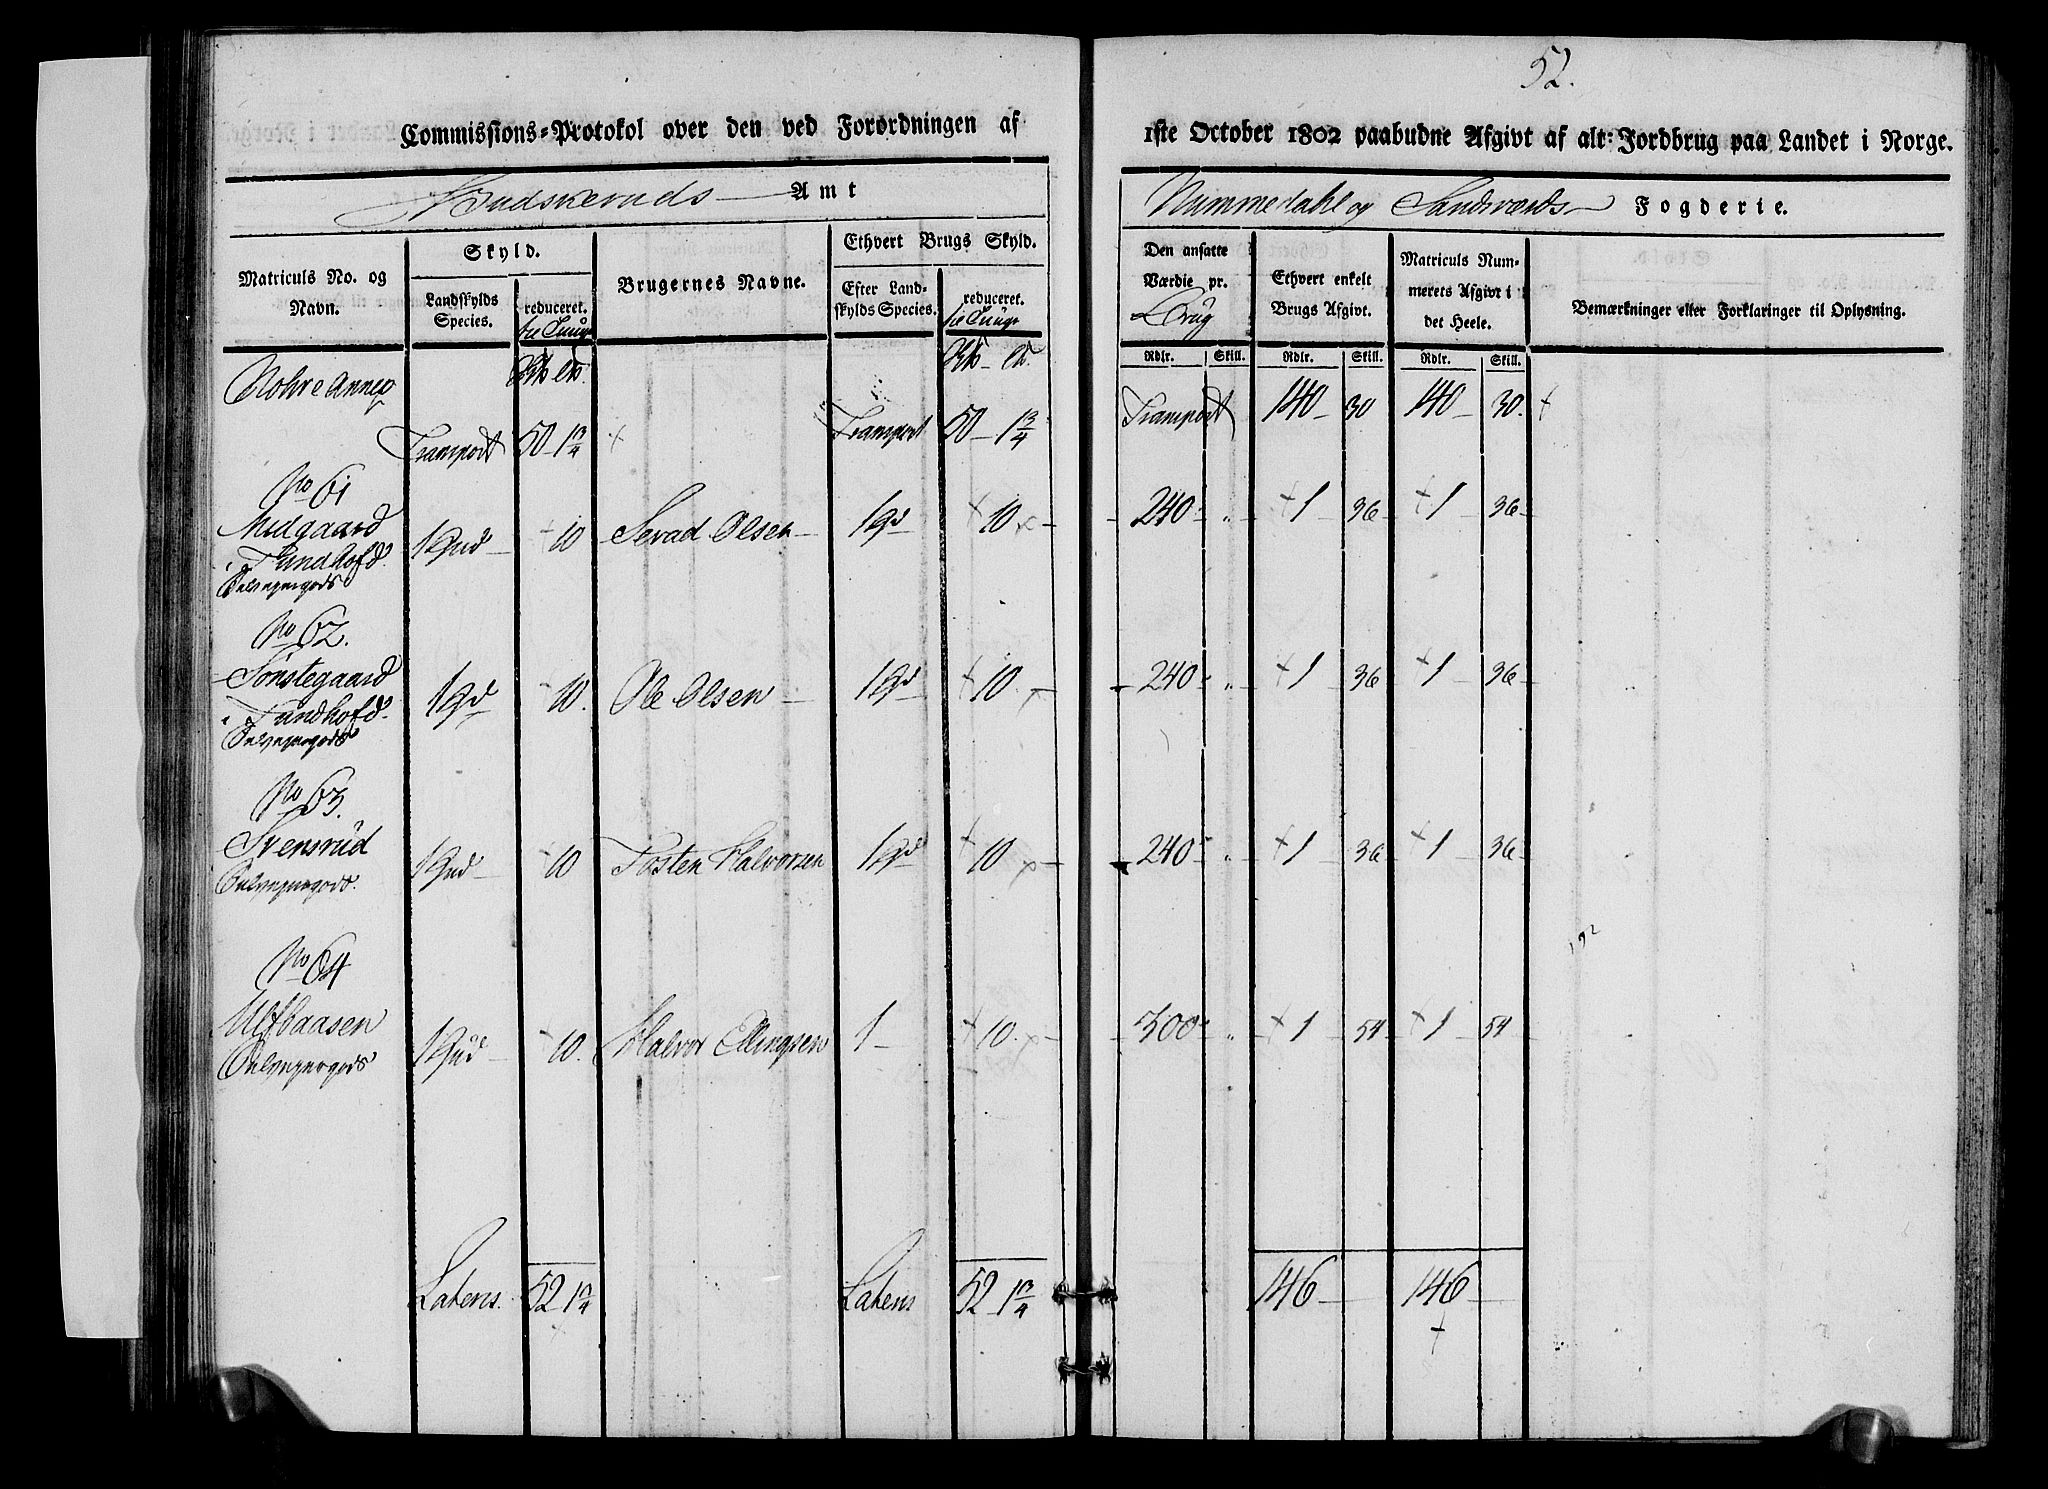 52.
Commissions-Protokol over den ved Forordningen af 1ste October 1802 paabudne Afgivt af alt: Jordbrug paa Landet i Norge.
Budskeruds Amt
Nummedahl og Sandsværds Fogderie.
Matriculs No. og Navn.
Skyld.
Landskylds Species.
reduceret.
Brugernes Navne.
Ethvert Brugs Skyld.
Efter Landskylds Species.
reduceret.
Den ansatte Værdie pr. Brug
Ethvert enkelt Brugs Afgivt.
Matriculs Nummerets Afgivt i det Heele.
Bemærkninger eller Forklaringer til Oplysning.
Rdlr. Skill. Rdlr. Skill. Rdlr. Skill.
Nohre Annex
Transport 50 - 1 3/4 Transport 50 - 1 3/4 Transport 140 - 30 140 - 30.
No 61
Midgaard i Tundhofd 1 Hud - 10 Sevad Olsen - 1 Hd 10 - 240 - " - 1 - 36 - 1 - 36 -
Selveyergods
No 62.
Sønstegaard i Tundhofd 1 Hd 10. Ole Olsen - 1 Hd 10. - 240 - " - 1 - 36 - 1 - 36 -
Selveyergods
No 63.
Svensrud 1 Hud - 10 Tosten Halvorsen 1 Hd 10 - 240 - " - 1 - 36 - 1 - 36 -
Selveyergods.
No 64
Ulfbaasen 1 Hud - 10. Halvor Ellingsen 1 - 10. - 300 - " - 1 54 1 - 54 -
Selveyergods
Lateris. 52 1 3/4 Lateris 52 - 1 3/4 146 - 146 -